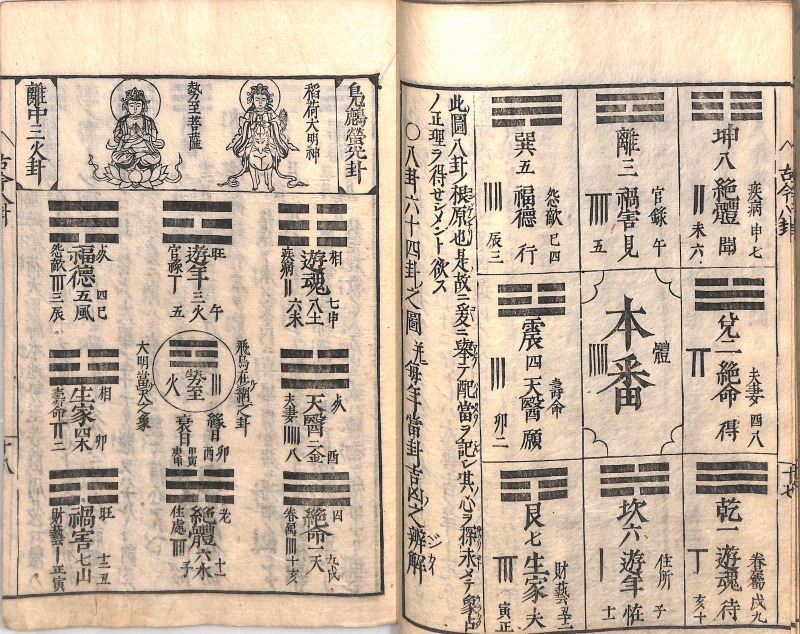 坤八絶體聞
疾病 申七
未六
離三禍害見
官録 午
五
巽五福德行
怨敵 巳四
辰三
兌二絶命得
夫妻 酉八
本番
體
震四天醫願
壽命
卯二
乾一遊魂待
眷属 戌九
亥十
坎六遊年性
住所 子
十一
艮七生家夫
財藝 丑十二
寅正
此圖八卦ノ根原也是故ニ爰ニ舉テ配當ヲ記シ其心ヲ探求メテ象占
ノ正理ヲ得セシメント欲ス
○八卦六十四卦之圖并毎年當卦吉凶之辨解
稲荷大明神
勢至菩薩
離中三火卦
相 七申
遊魂八土
疾病 六未
旺 午
遊年三火
官禄 五
亥 四巳
福德五風
怨敵 三辰
酉
天醫二金
夫妻 八
飛鳥在網之卦
勢至
火
大明當天之象
相 卯
生家四木
壽命 二
四 九戌
絶命一天
眷属 十亥
老 十一
絶體六水
住處 子
旺 十二丑
禍害七山
財藝 正寅